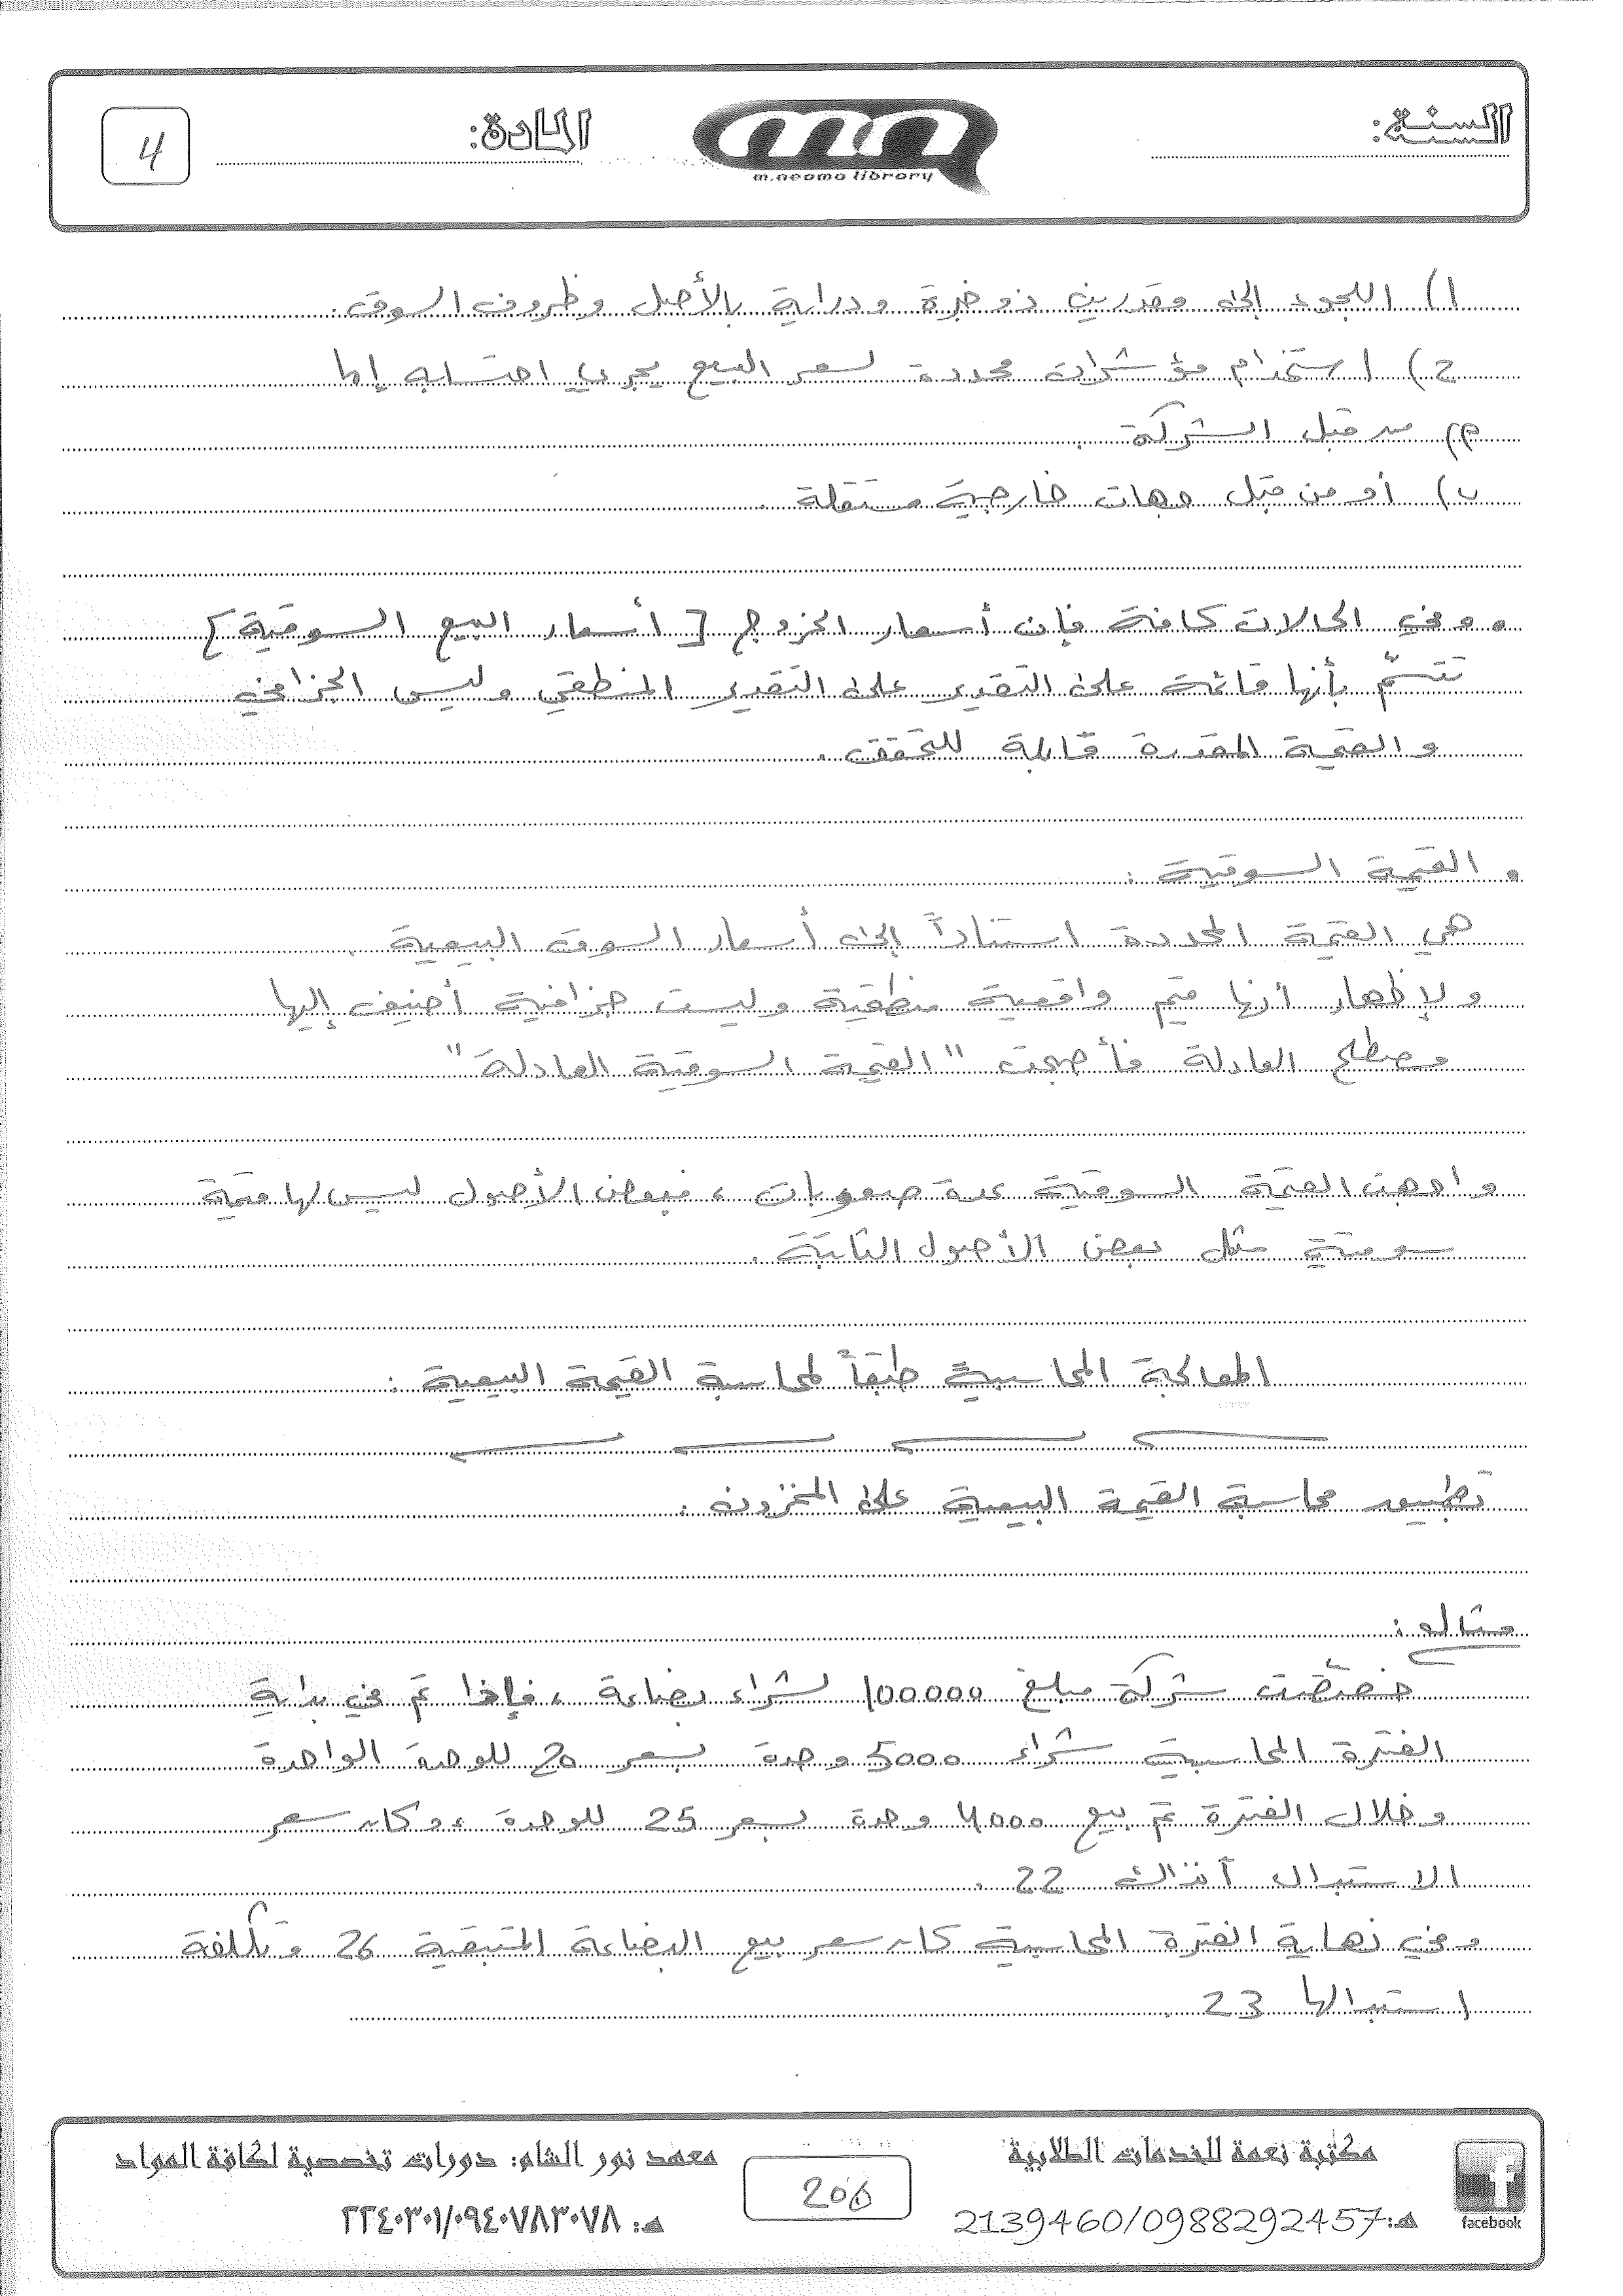 السنة:
m.neama library
المادة:
4
1) اللجوء إلى مقدرين ذو خبرة ودراية بالأصل وظروف السوق.
ج) استخدام مؤشرات محددة لسعر البيع يجري احتسابه إما
م) من قبل الشركة.
ب) أو من قبل جهات خارجية مستقلة.
• وفي الحالات كافة فإن أسعار الخروج [أسعار البيع السوقية]
تتسم بأنها قائمة على التقدير على التقدير المنطقي وليس الجزافي
والقيمة المقدرة قابلة للتحقق.
• القيمة السوقية:
هي القيمة المحددة استناداً إلى أسعار السوق البيعية.
ولإظهار أنها قيم واقعية منطقية وليست جزافية أضيف إليها
مصطلح العادلة فأصبحت "القيمة السوقية العادلة"
واجهت القيمة السوقية عدة صعوبات، فبعض الأصول ليس لها قيمة
سوقية مثل بعض الأصول الثابتة.
المعالجة المحاسبية طبقاً لمحاسبة القيمة البيعية:
تطبيق محاسبة القيمة البيعية على المخزون:
مثال:
خصصت شركة مبلغ 100000 لشراء بضاعة، فإذا تم في بداية
الفترة المحاسبية شراء 5000 وحدة بسعر 20 للوحدة الواحدة
وخلال الفترة تم بيع 4000 وحدة بسعر 25 للوحدة، وكان سعر
الاستبدال آنذاك 22.
وفي نهاية الفترة المحاسبية كان سعر بيع البضاعة المتبقية 26 وتكلفة
استبدالها 23.
مكتبة نعمة للخدمات الطلابية
هـ: 2139460/0988292457
facebook
206
معهد نور الشام: دورات تخصصية لكافة المواد
هـ: ٢٢٤٠٣٠١/٠٩٤٠٧٨٣٠٧٨